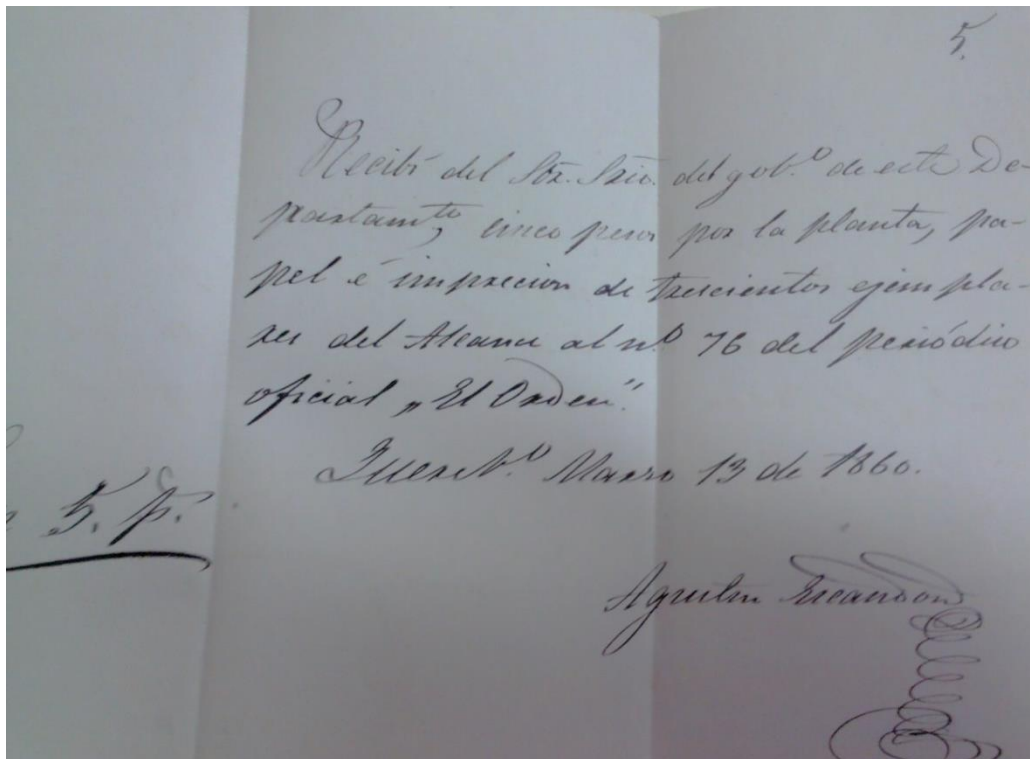 5.
Recibí del Sõr. Srio. del gob.º de este De-
partam.to, cinco pesos por la planta, pa-
pel é imprecion de trescientos ejempla-
res del Alcance al n.º 76 del periódico
oficial „El Orden."
Querét.º Marzo 13 de 1860.
5. p.
Agustin Escandon